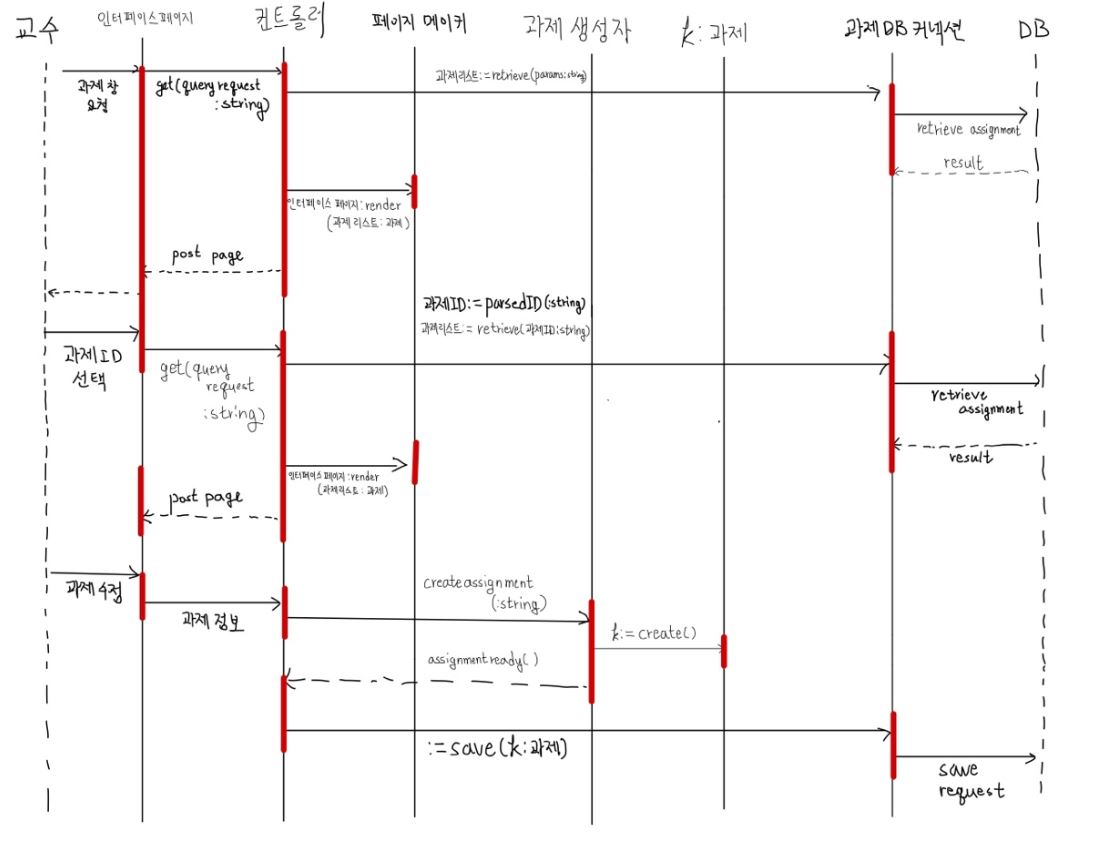 교수 인터페이스페이지 컨트롤러 페이지 메이커 과제 생성자 k: 과제 과제DB 커넥션 DB
과제 창
요청
get(query request
:string)
과제리스트:=retrieve(params:string)
retrieve assignment
result
인터페이스 페이지:render
(과제 리스트: 과제)
post page
과제ID:=parsedID(:string)
과제리스트:= retrieve(과제ID:string)
과제ID
선택
get(query
request
:string)
retrieve
assignment
result
인터페이스 페이지:render
(과제리스트: 과제)
post page
과제 수정
과제 정보
create assignment
(:string)
k:=create()
assignment ready( )
:=save(k:과제)
save
request